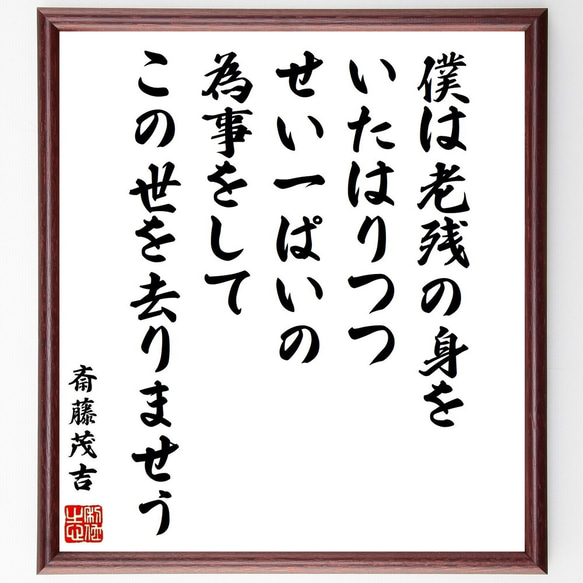 僕は老残の身を
いたはりつつ
せい一ぱいの
為事をして
この世を去りませう
斎藤茂吉